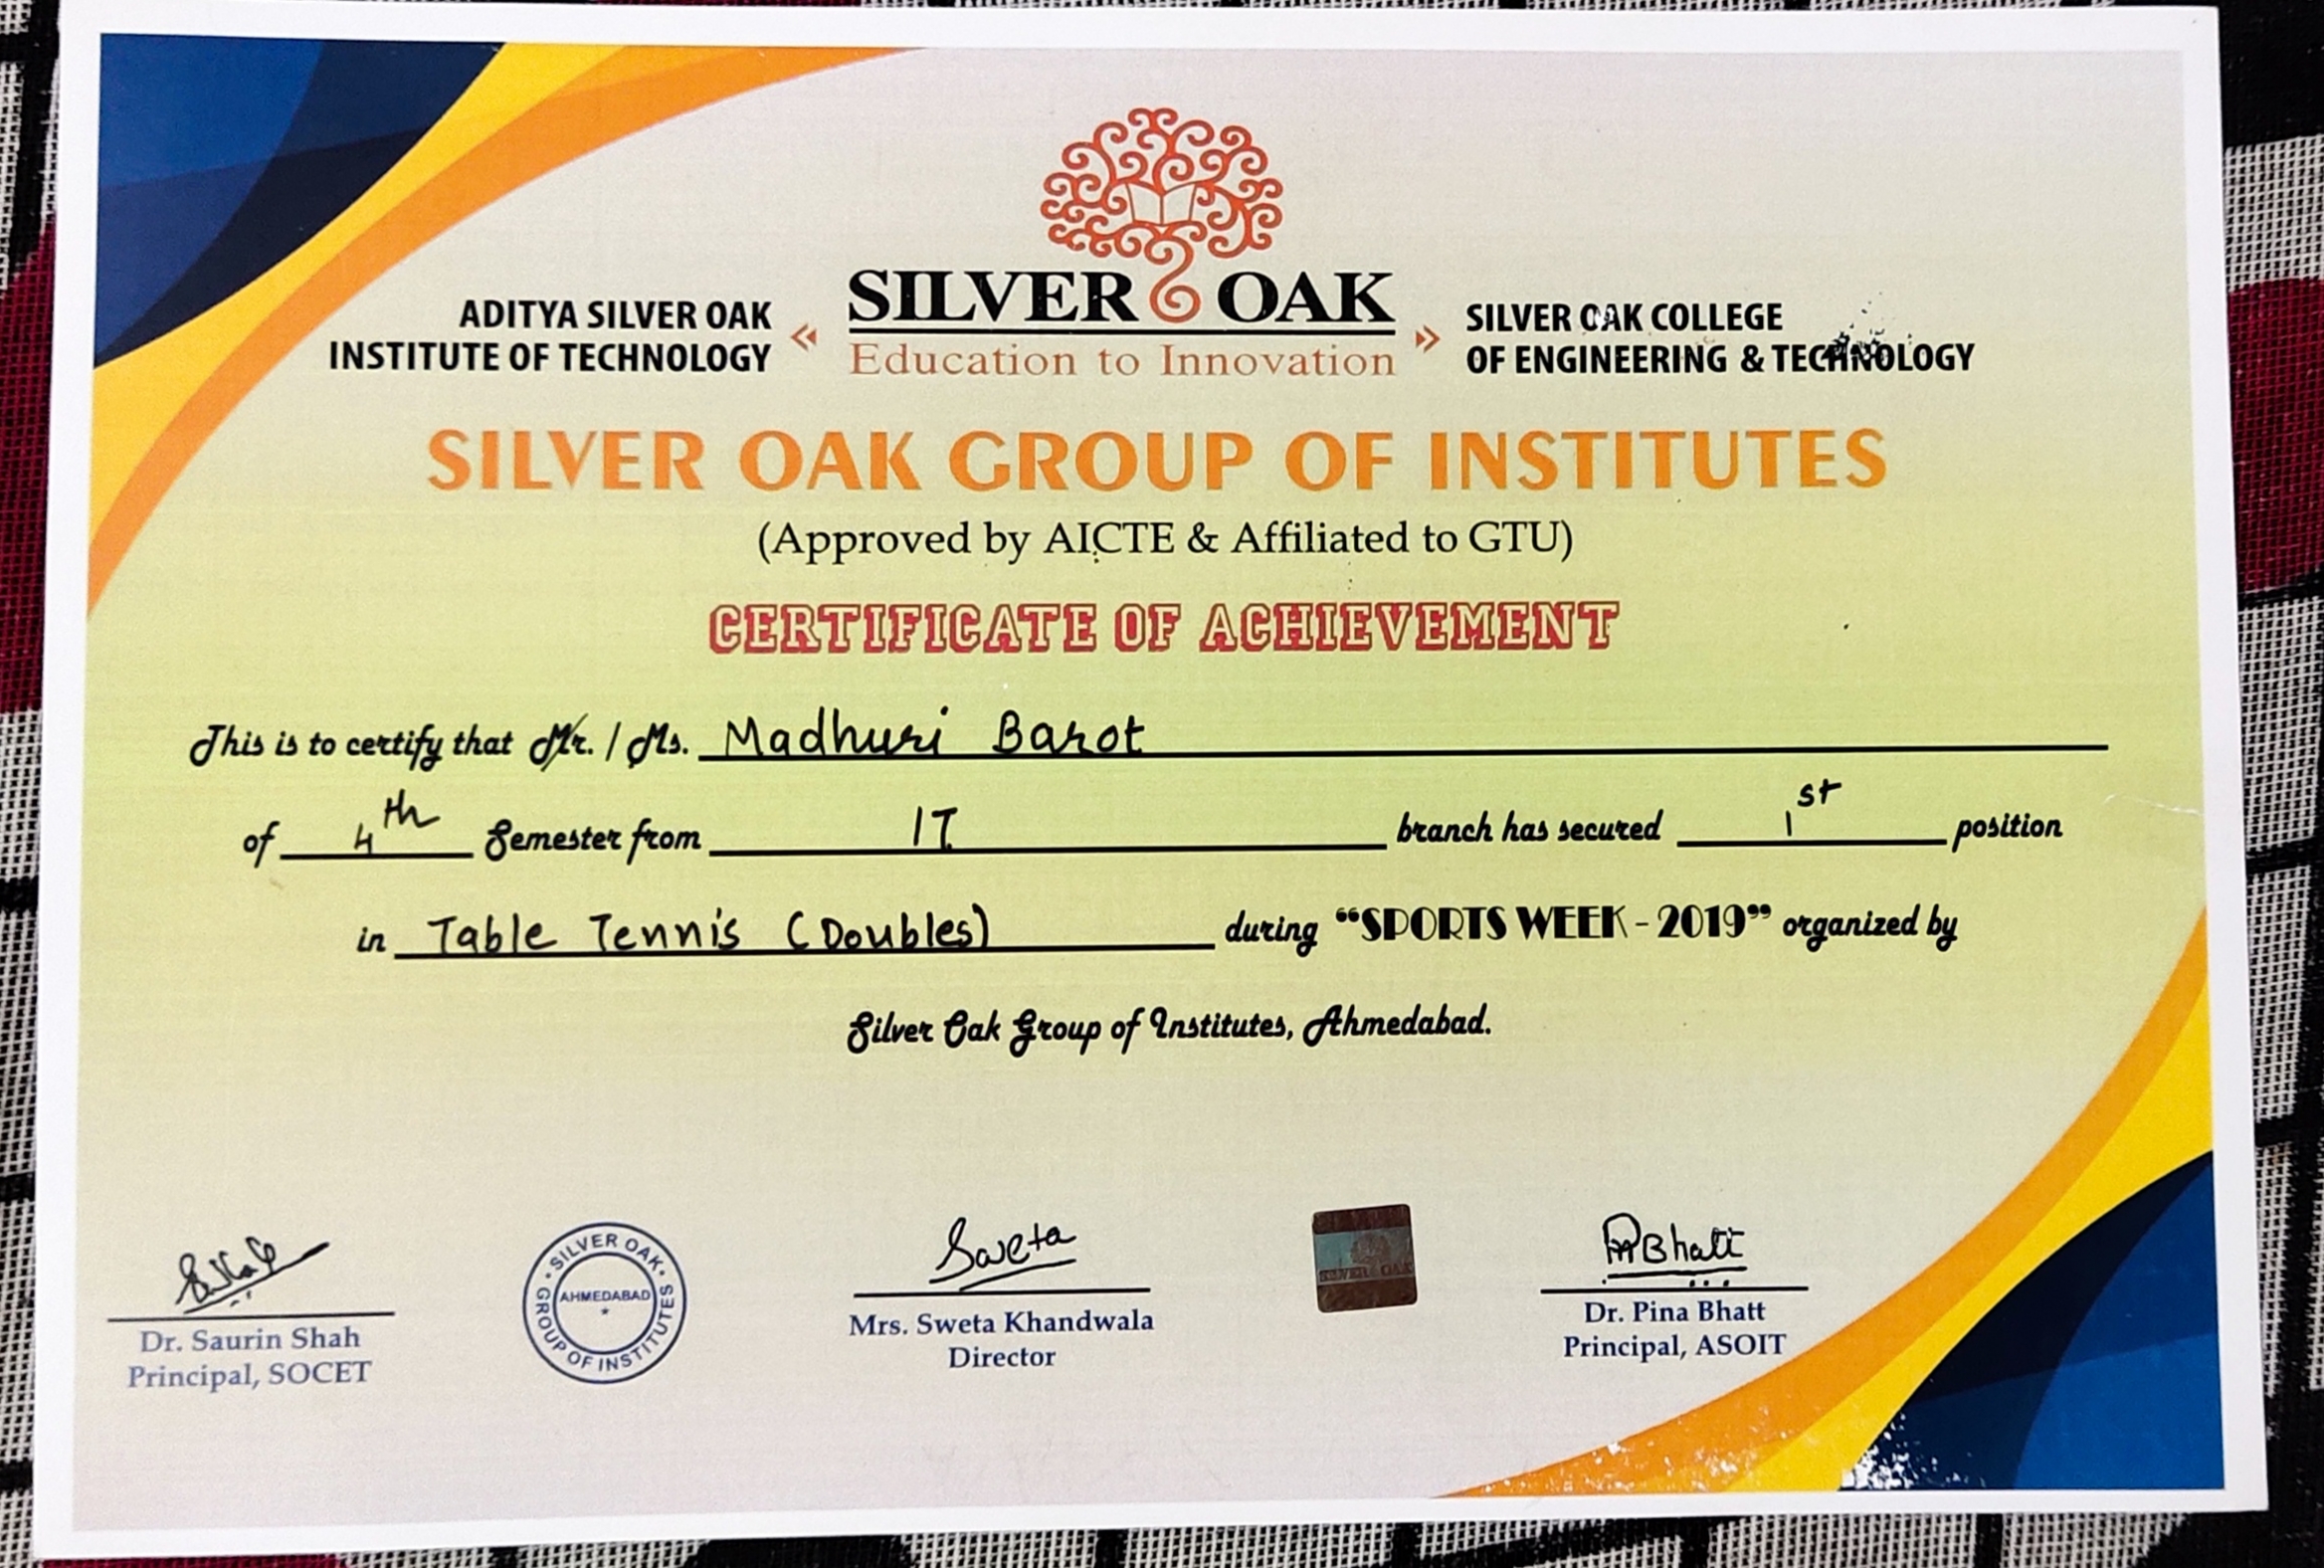 SILVER OAK
Education to Innovation
ADITYA SILVER OAK
INSTITUTE OF TECHNOLOGY
SILVER OAK COLLEGE
OF ENGINEERING & TECHNOLOGY
SILVER OAK GROUP OF INSTITUTES
(Approved by AICTE & Affiliated to GTU)
CERTIFICATE OF ACHIEVEMENT
This is to certify that Mr. / Ms. Madhuri Barot
of 4th Semester from IT branch has secured 1st position
in Table Tennis (Doubles) during “SPORTS WEEK - 2019” organized by
Silver Oak Group of Institutes, Ahmedabad.
Dr. Saurin Shah
Principal, SOCET
SILVER OAK
GROUP OF INSTITUTES
AHMEDABAD
Sweta
Mrs. Sweta Khandwala
Director
SILVER OAK
PBhatt
Dr. Pina Bhatt
Principal, ASOIT